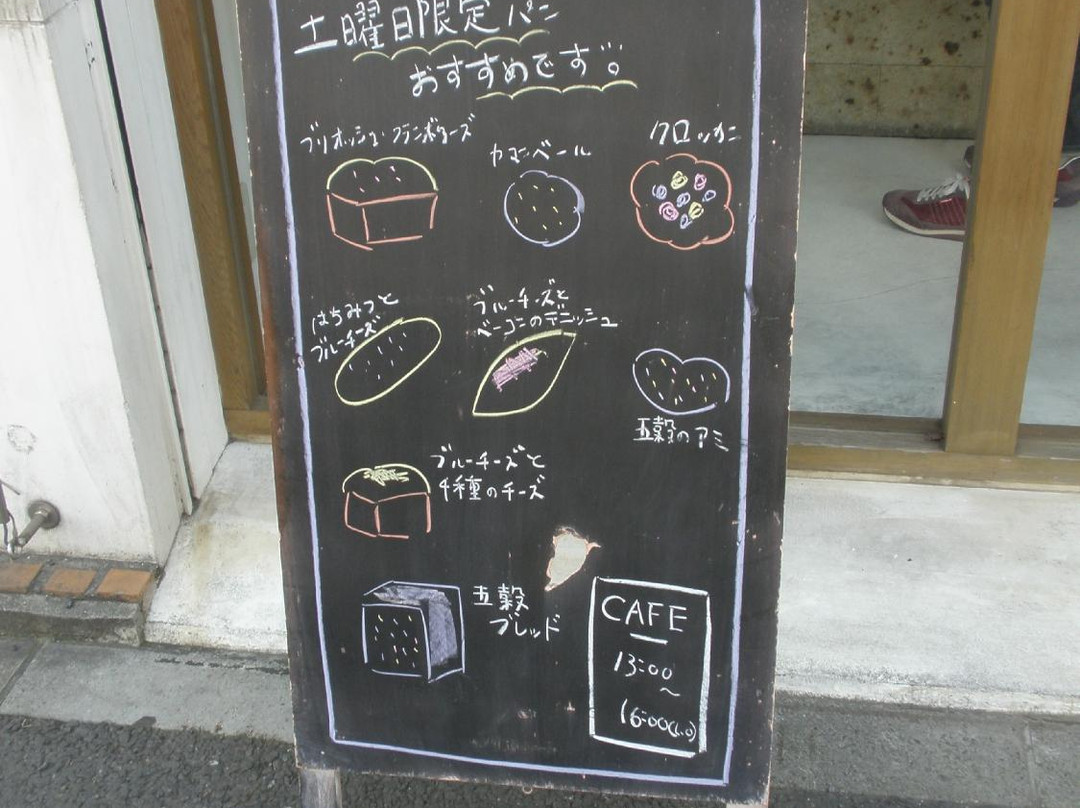 土曜日限定パン
おすすめです。
ブリオッシュ フランボワーズ
カマンベール
クロッカン
はちみつと
ブルーチーズ
ブルーチーズと
ベーコンのデニッシュ
五穀のアミ
ブルーチーズと
4種のチーズ
五穀
ブレッド
CAFE
13:00
~
16:00(L.O)